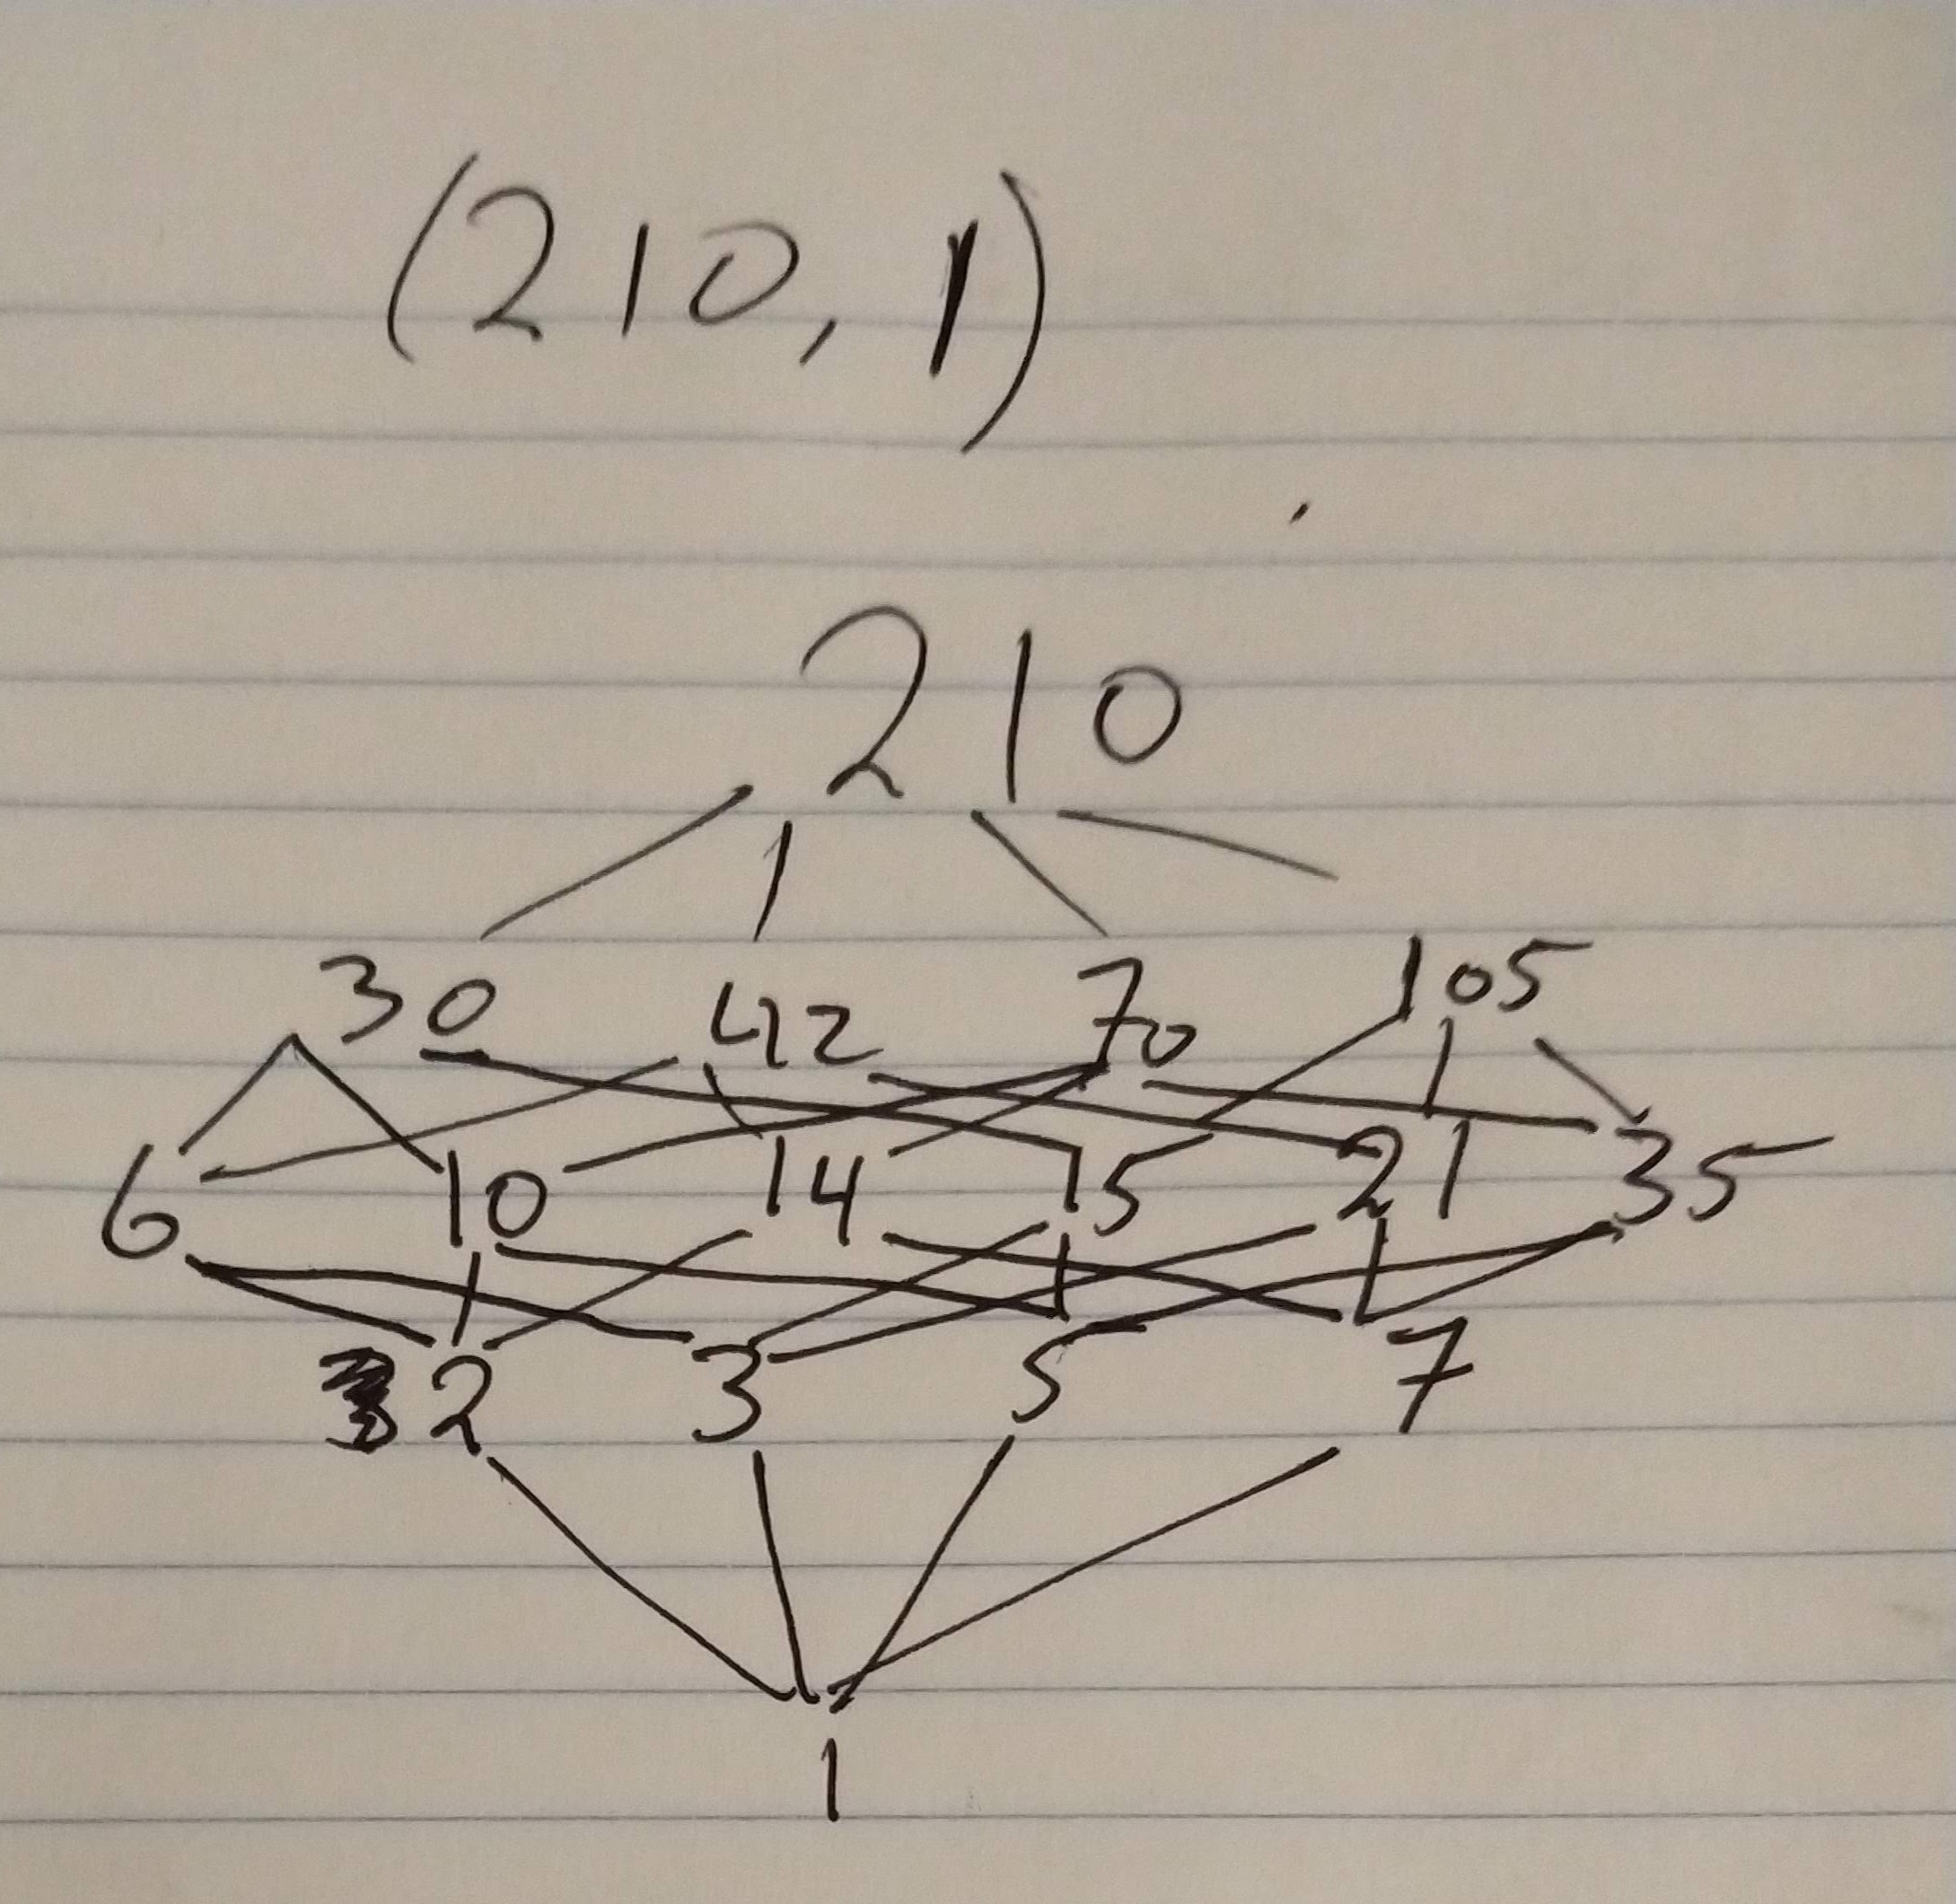 (210, 1)
210
30 42 70 105
6 10 14 15 21 35
2 3 5 7
1